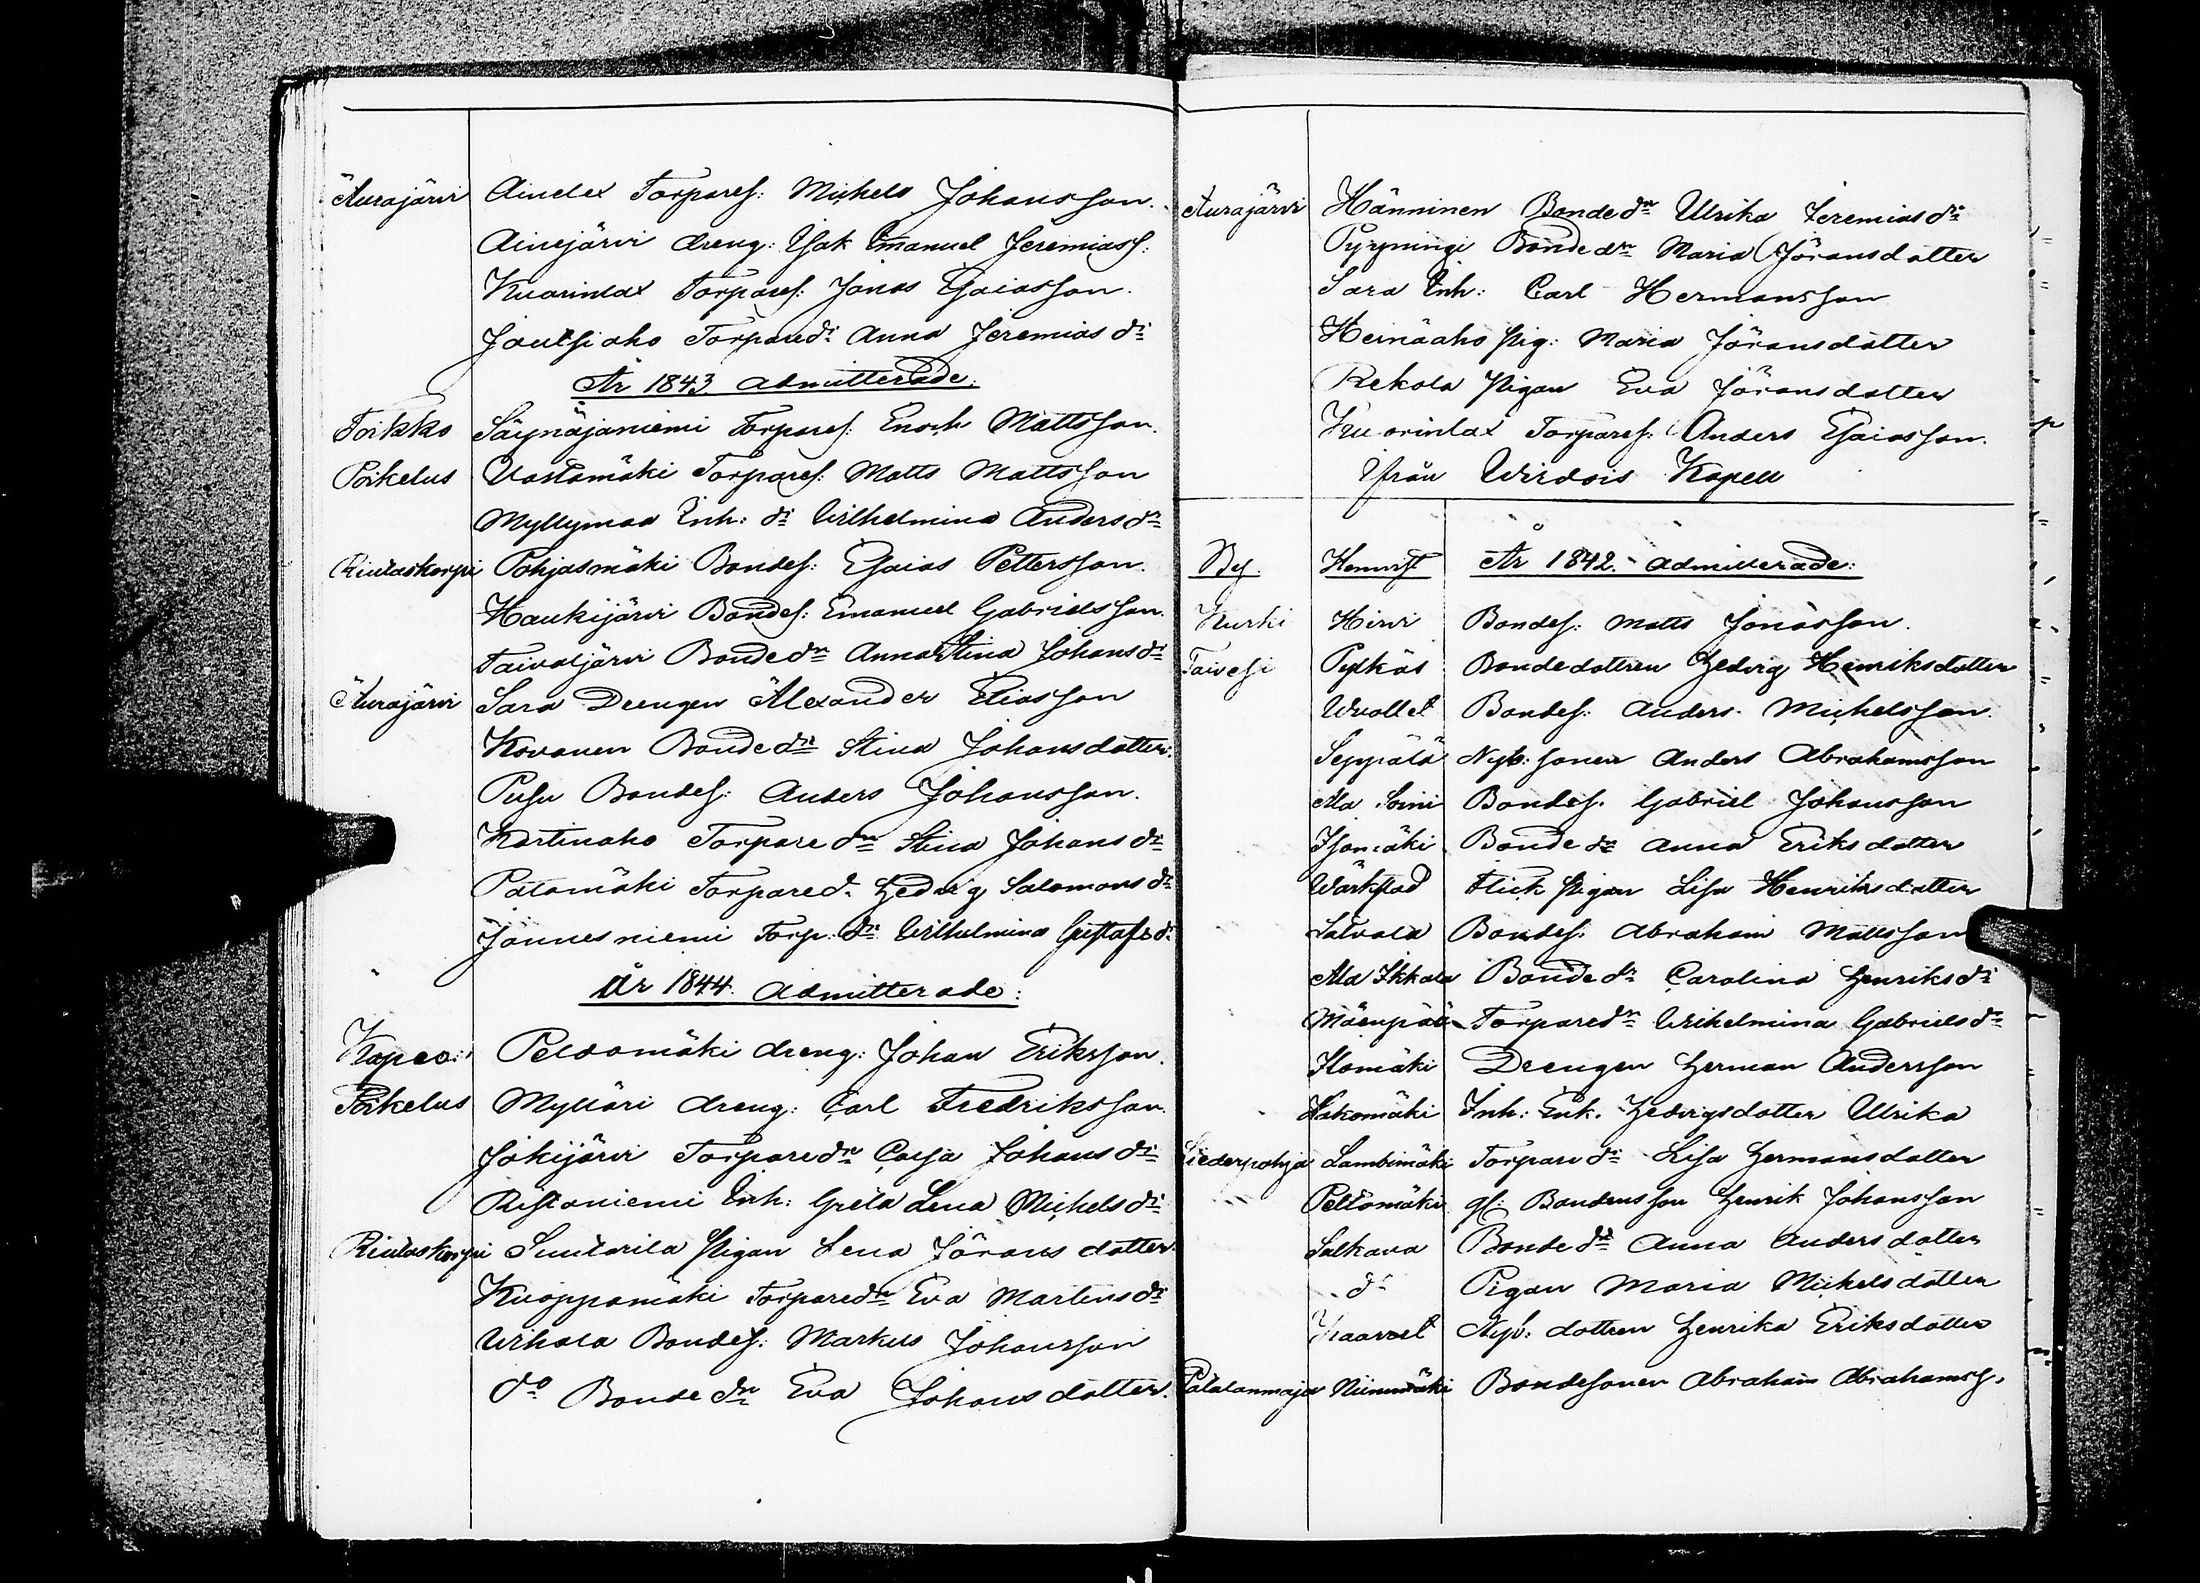 Aurajärvi Ainelex Torpares: Michels Johansson.
Ainejärvi dreng: Isak Emanuel Jeremiass:
Kuorinlax Torpares: Jonas Esaiasson.
Joutsiaho Torpared:r Anna Jeremias dr
År 1843. admitterade:
Toikko Säynäjäniemi Torpares: Enoch Mattsson.
Poikelus Vastamäki Torpares: Matts Mattsson
Myllymaa Inh: dr Wilhelmina Anders dr
Riutaskorpi Pohjasmäki Bondes: Esaias Pettersson.
Haukijärvi Bondes: Emanuel Gabrielsson.
Taivaljärvi Bonde dn Anna Stina Johans dr
Aurajärvi Sara Drengen Alexander Eliasson
Kovanen Bonde dn Stina Johansdotter.
Pusu Bondes: Anders Johansson.
Kortinaho Torpare dn Stina Johans dr
Patamäki Torpare d. Hedvig Salomons dr
Jonnesniemi Torp: dn Wilhelmina Gustafs dr
År 1844. admitterade:
Peldomäki dreng: Johan Eriksson.
Poikelus Mylläri dreng: Carl Fredriksson.
Jokijärvi Torpare dn Caisa Johans dr
Ristaniemi Inh: Greta Lena Michels dr
Riutaskorpi Suutarila Pigan Lena Jörans dotter
Kuoppamäki Torpare dn Eva Martens dr
Urhala Bondes: Markus Johansson
do Bonde dn Eva Johans dotter.
Aurajärvi Hänninen Bonde dn Ulrika Jeremias dr
Pyryningi Bonde dn Maria Jöransdotter
Sara Inh: Carl Hermansson
Heinäaho Pig: Maria Jöransdotter
Rekola Pigan Eva Jöransdotter
Kuorinlax Torpares: Anders Esaiasson.
Ifrån Wirdois Kapell
By. Hemvist År 1842. admitterade:
Kurki Hirvi Bondes: Matts Jonasson.
Taivesi Pylkäs Bondedottren Hedvig Henriksdotter
Bondes: Anders Michelsson.
Seppälä Nyb: sonen Anders Abrahamsson
Ala Soini Bondes: Gabriel Johansson
Isomäki Bonde dr Anna Eriksdotter
Wärkstad Flick Pigan Lisa Henriksdotter
Satvala Bondes: Abraham Mattsson
Ala Ikkala Bonde dr Carolina Henriks dr
Mäenpää Torpare dn Wilhelmina Gabriels dr
Ilomäki Drengen Herman Andersson
Hakomäki Inh: Enk. Hedvigsdotter Ulrika
Liederpohja Lambimäki Torpare dr Lisa Hermansdotter
Peltomäki gl: Bondens son Henrik Johansson
Salkava Bonde dr Anna Andersdotter
do Pigan Maria Michelsdotter
Nyb: dottren Henrika Eriksdotter
Patalanmaja Niinimäki Bondesonen Abraham Abrahamss.